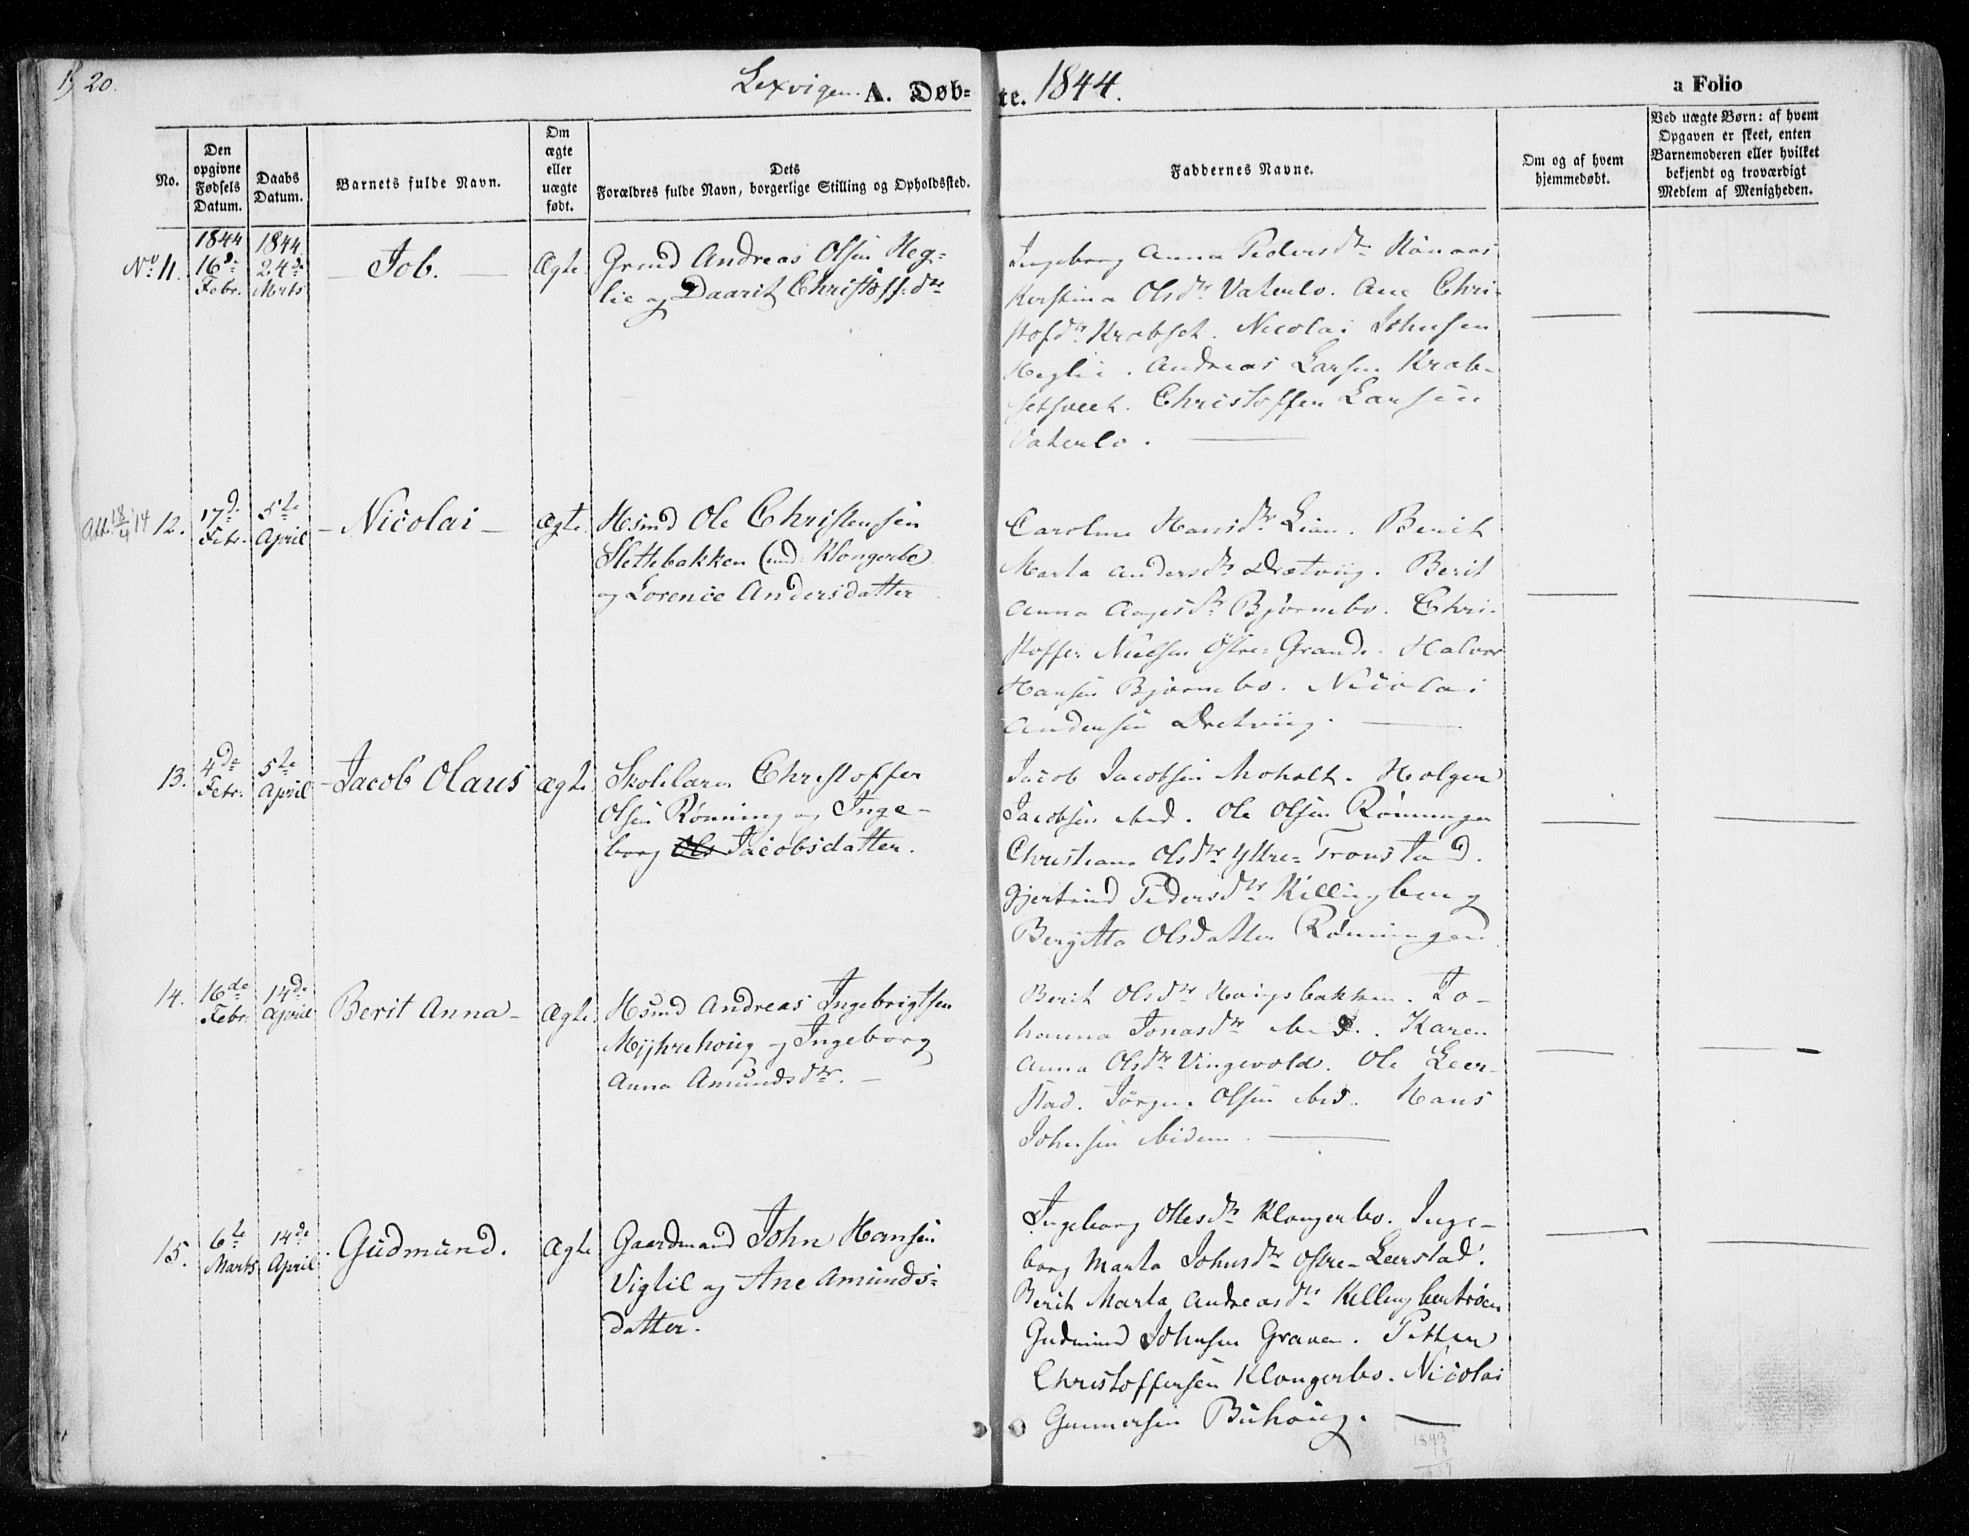 20.
Lexvigen A. Døb-te. 1844.
a Folio
No.
Den opgivne Fødsels Datum.
Daabs Datum.
Barnets fulde Navn.
Om ægte eller uægte født.
Dets Forældres fulde Navn, borgerlige Stilling og Opholdssted.
Faddernes Navne.
Om og af hvem hjemmedøbt.
Ved uægte Børn: af hvem Opgaven er skeet, enten Barnemoderen eller hvilket bekjendt og troværdigt Medlem af Menigheden.
No 11.
1844 16de Febr.
1844 24de Marts
Job.
Ægte
Grmd Andreas Olsen Heg-
lie og Daarit Christoff.dtr
Ingeborg Anna Pedersdtr
Kerstina Olsdtr Vaterlo. Ane Chri-
stofdtr Krabset. Nicolai Johnsen
Heglie. Andreas Larsen Krab-
Christoffer Larsen
Vaterlo.
Att. 18/4 14
12.
17de Febr.
5te April
Nicolai
Ægte.
Hsmd Ole Christensen
Slettebakken (und. Klangerbo
og Lorence Andersdatter
Caroline Hansdtr Lien. Berit
Marta Andersdtr Drætviig. Berit
Anna Aagesdtr Bjørnebo. Chri-
stoffer Nielsen Østre Grande. Halvor
Hansen Bjørnebo. Nicolai
Andersen Dretviig.
13.
4de Febr.
5te April
Jacob Olaus
Ægte
Skolelærer Christoffer
Olsen Rønning og Inge-
borg Ols Jacobsdatter.
Jacob Jacobsen Moholt. Holger
Jacobsen ibid. Ole Olsen Rønningen
Christiana Olsdtr Yttre-Tronstad.
Gjertrud Pedersdtr Killingberg
Bergitta Olsdatter Rønningen
14.
16de Febr.
14de April
Berit Anna
Ægte
Hsmd Andreas Ingebrigtsen
Myhrehoug og Ingeborg
Anna Amundsdtr.
Berit Olsdtr Haugsbakken. Jo-
hanna Jonasdtr ibid. Karen
Anna Olsdtr Vingevold. Ole Leer-
stad. Jørgen Olsen ibid. Hans
Johnsen ibidem.
15.
6te Marts
14de April
Gudmund.
Ægte
Gaardmand John Hansen
Vigtil og Ane Amunds-
datter.
Ingeborg Ollesdtr Klangerbo. Inge-
borg Marta Johnsdtr Østre-Leerstad.
Berit Marta Andreasdtr Killingbertrøen
Gudmund Johnsen Graven. Petter
Christoffersen Klangerbo. Nicolai
Gunnersen Buhoug.
1843